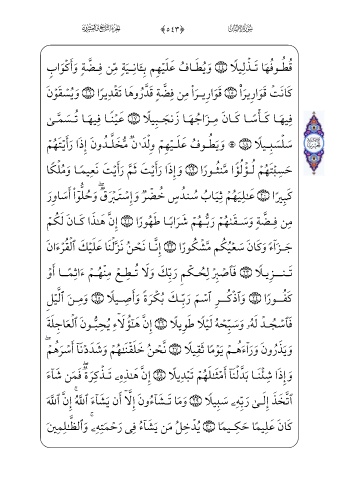 سُورَةُ الإِنسَانِ ﴿٥٤٣﴾ الجُزْءُ التَّاسِعُ وَالعِشْرُونَ
قُطُوفُهَا تَذْلِيلًا ۝١٤ وَيُطَافُ عَلَيْهِم بِـَٔانِيَةٍ مِّن فِضَّةٍ وَأَكْوَابٍ
كَانَتْ قَوَارِيرَا۠ ۝١٥ قَوَارِيرَا۟ مِن فِضَّةٍ قَدَّرُوهَا تَقْدِيرًا ۝١٦ وَيُسْقَوْنَ
فِيهَا كَأْسًا كَانَ مِزَاجُهَا زَنجَبِيلًا ۝١٧ عَيْنًا فِيهَا تُسَمَّىٰ
سَلْسَبِيلًا ۝١٨ ۞ وَيَطُوفُ عَلَيْهِمْ وِلْدَٰنٌ مُّخَلَّدُونَ إِذَا رَأَيْتَهُمْ
حَسِبْتَهُمْ لُؤْلُؤًا مَّنثُورًا ۝١٩ وَإِذَا رَأَيْتَ ثَمَّ رَأَيْتَ نَعِيمًا وَمُلْكًا
كَبِيرًا ۝٢٠ عَٰلِيَهُمْ ثِيَابُ سُندُسٍ خُضْرٌ وَإِسْتَبْرَقٌ ۖ وَحُلُّوٓا۟ أَسَاوِرَ
مِن فِضَّةٍ وَسَقَىٰهُمْ رَبُّهُمْ شَرَابًا طَهُورًا ۝٢١ إِنَّ هَٰذَا كَانَ لَكُمْ
جَزَآءً وَكَانَ سَعْيُكُم مَّشْكُورًا ۝٢٢ إِنَّا نَحْنُ نَزَّلْنَا عَلَيْكَ الْقُرْءَانَ
تَنزِيلًا ۝٢٣ فَٱصْبِرْ لِحُكْمِ رَبِّكَ وَلَا تُطِعْ مِنْهُمْ ءَاثِمًا أَوْ
كَفُورًا ۝٢٤ وَٱذْكُرِ ٱسْمَ رَبِّكَ بُكْرَةً وَأَصِيلًا ۝٢٥ وَمِنَ ٱلَّيْلِ
فَٱسْجُدْ لَهُۥ وَسَبِّحْهُ لَيْلًا طَوِيلًا ۝٢٦ إِنَّ هَٰٓؤُلَآءِ يُحِبُّونَ ٱلْعَاجِلَةَ
وَيَذَرُونَ وَرَآءَهُمْ يَوْمًا ثَقِيلًا ۝٢٧ نَّحْنُ خَلَقْنَٰهُمْ وَشَدَدْنَآ أَسْرَهُمْ ۖ
وَإِذَا شِئْنَا بَدَّلْنَآ أَمْثَٰلَهُمْ تَبْدِيلًا ۝٢٨ إِنَّ هَٰذِهِۦ تَذْكِرَةٌ ۖ فَمَن شَآءَ
ٱتَّخَذَ إِلَىٰ رَبِّهِۦ سَبِيلًا ۝٢٩ وَمَا تَشَآءُونَ إِلَّآ أَن يَشَآءَ ٱللَّهُ ۚ إِنَّ ٱللَّهَ
كَانَ عَلِيمًا حَكِيمًا ۝٣٠ يُدْخِلُ مَن يَشَآءُ فِى رَحْمَتِهِۦ ۚ وَٱلظَّٰلِمِينَ